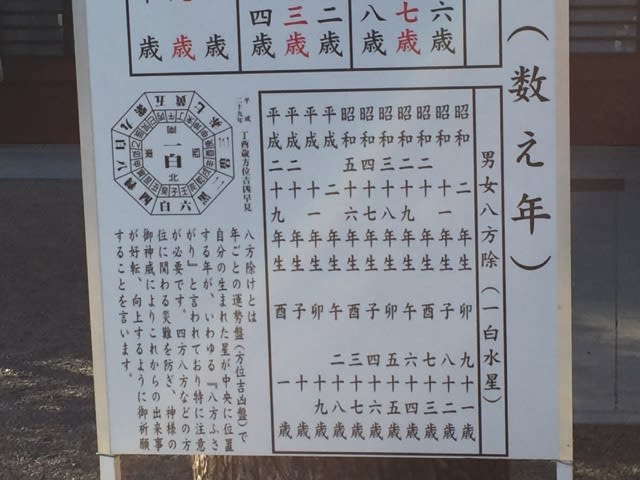 (数え年)
六歳
七歳
八歳
二歳
三歳
四歳
歳
歳
歳
男女八方除(一白水星)
昭和二年生 卯 九十一歳
昭和十一年生 子 八十二歳
昭和二十年生 酉 七十三歳
昭和二十九年生 午 六十四歳
昭和三十八年生 卯 五十五歳
昭和四十七年生 子 四十六歳
昭和五十六年生 酉 三十七歳
平成二年生 午 二十八歳
平成十一年生 卯 十九歳
平成二十年生 子 十歳
平成二十九年生 酉 一歳
平成二十九年 丁酉歳方位吉凶早見
南
一白
北
東
六白
八白
九紫
五黄
七赤
八方除けとは
年ごとの運勢盤(方位吉凶盤)で
自分の生まれた星が中央に位置
する年が、いわゆる『八方ふさ
がり』と言われており特に注意
が必要です。四方八方などの方
位に関わる災難を防ぎ、神様の
御神威によりこれからの出来事
が好転、向上するように御祈願
することを言います。